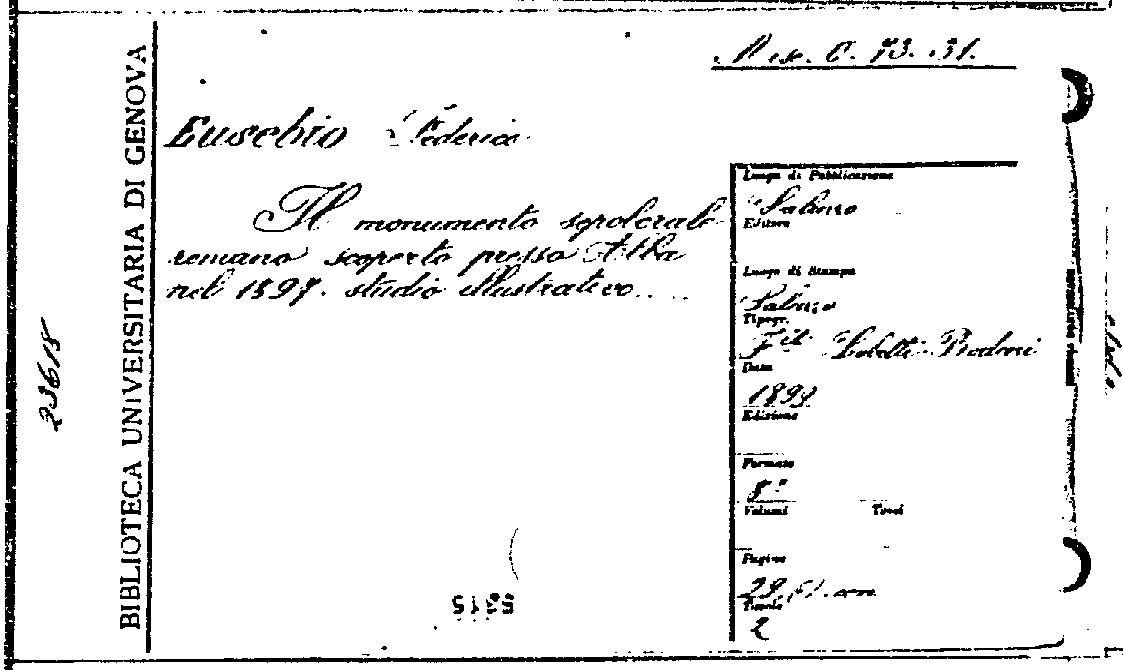 Misc. C. 73. 31.
BIBLIOTECA UNIVERSITARIA DI GENOVA
23615
Eusebio Federico
Il monumento sepolcrale
romano scoperto presso Alba
nel 1897. studio illustrativo....
Luogo di Pubblicazione
Saluzzo
Editore
Luogo di Stampa
Saluzzo
Tipogr.
F.lli Lobetti-Bodoni
Data
Edizione
Formato
8°
Volumi Tomi
Pagine
29,
Tavole
2